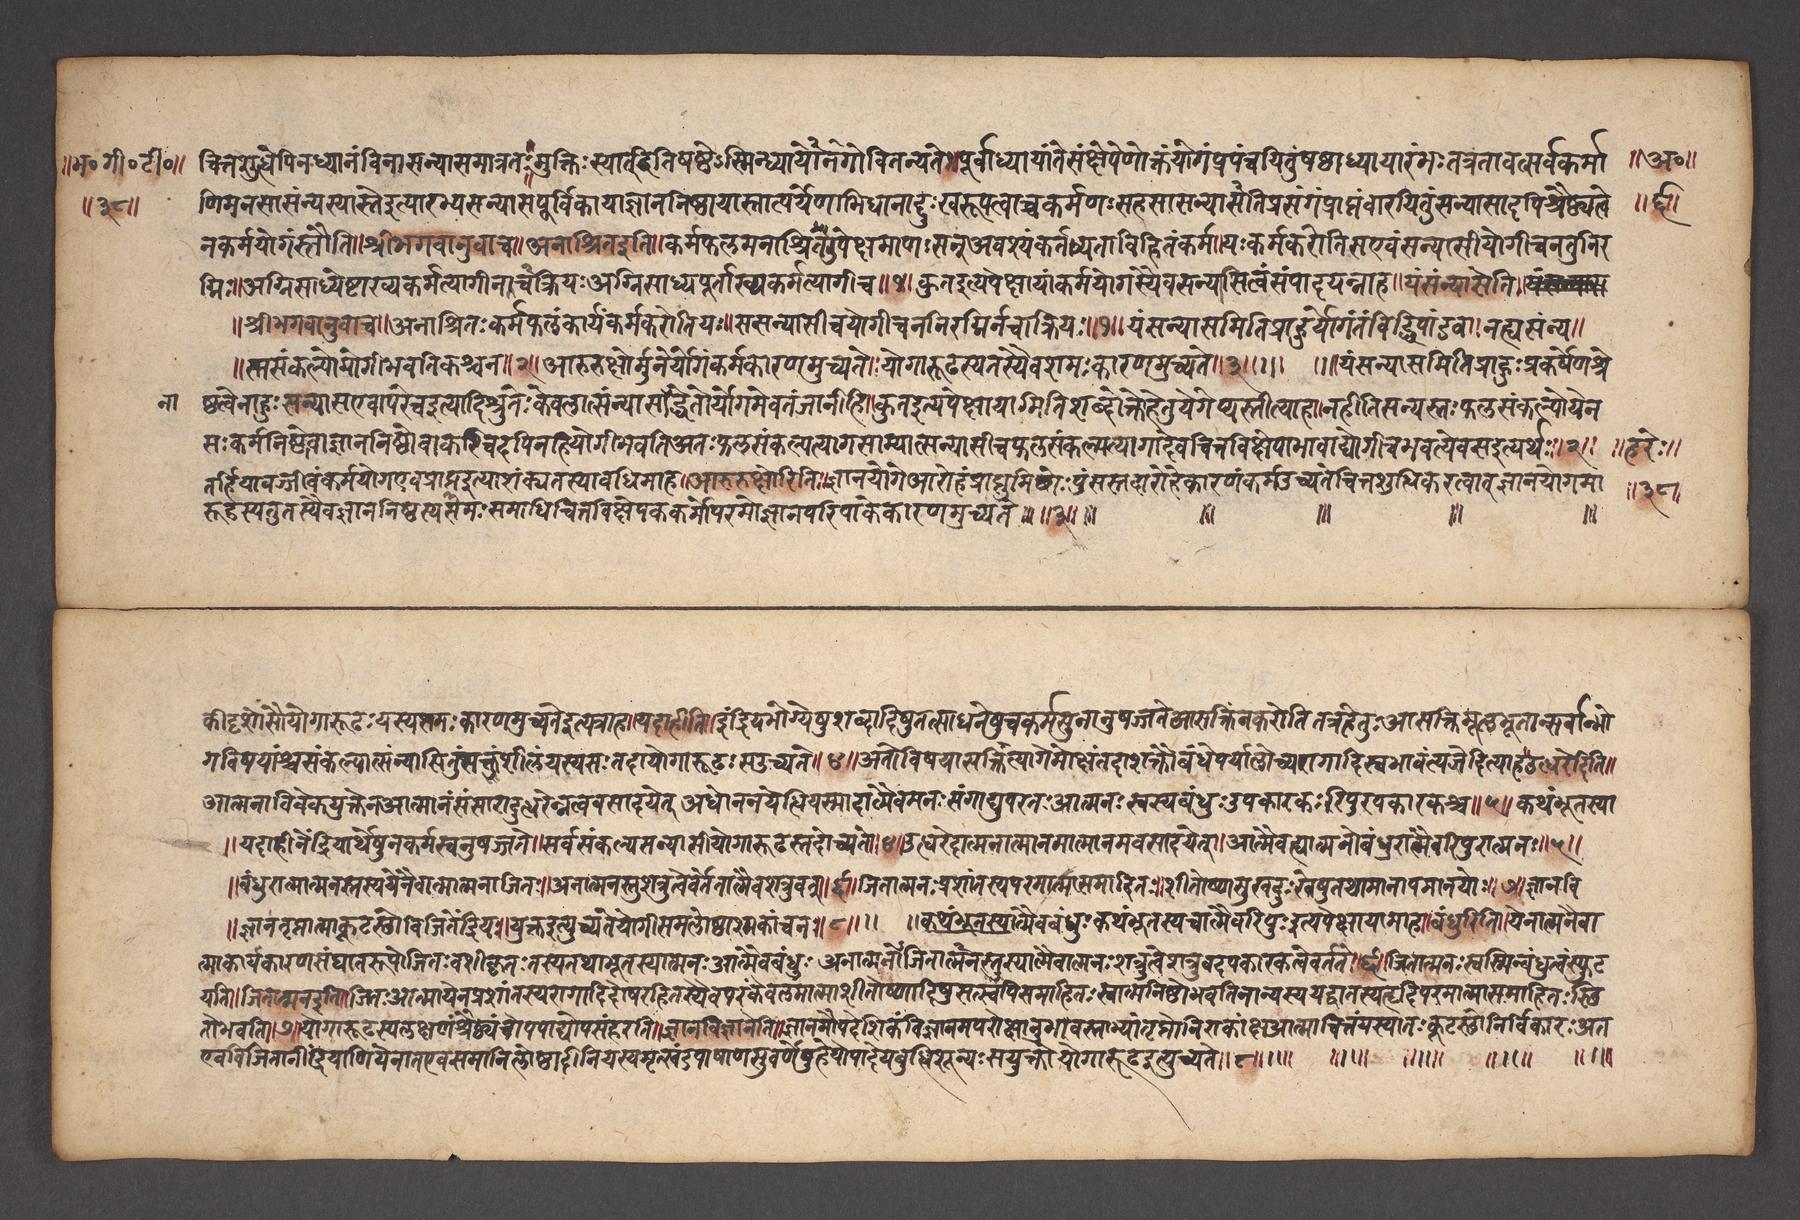 ॥भ॰गी॰टी॰॥ चित्तशुद्धेपिनध्यानंविनासन्यासमात्रतः॥मुक्तिःस्यादितिषष्ठेऽस्मिन्ध्यायोनेगोवितन्यते॥पूर्वाध्यायांतेसंक्षेपेणोक्तंयोगंप्रपंचयितुंषष्ठाध्यायारंभःतत्रतावत्सर्वकर्मा ॥अ॰॥
॥३८॥ णिमनसासंन्यस्यास्तेइत्यारभ्यसन्यासपूर्विकायाज्ञाननिष्ठायास्तात्पर्येणाभिधानाद्दुःखरूपत्वाच्चकर्मणःसहसासन्यासेतिप्रसंगंप्राप्तंवारयितुंसन्यासादपिश्रैष्ठ्यत्वे ॥६॥
नकर्मयोगंस्तौति॥श्रीभगवानुवाच॥अनाश्रितइति॥कर्मफलमनाश्रितोनुपेक्षमाणःसन्अवश्यंकर्तव्यताविहितंकर्म॥यःकर्मकरोतिसएवसंन्यासीयोगीचनतुनिर
ग्निः॥अग्निसाध्येष्टाख्यकर्मत्यागीनचाक्रियःअग्निसाध्यपूर्ताख्यकर्मत्यागीच॥१॥कुतइत्यपेक्षायांकर्मयोगस्यैवसन्यासित्वंसंपादयन्नाह॥यंसंन्यासेति॥
॥श्रीभगवानुवाच॥अनाश्रितःकर्मफलंकार्यंकर्मकरोतियः॥ससन्यासीचयोगीचननिरग्निर्नचाक्रियः॥१॥यंसन्यासमितिप्राहुर्योगंतंविद्धिपांडव॥नह्यसंन्य॥
॥स्तसंकल्पोयोगीभवतिकश्चन॥२॥आरुरुक्षोर्मुनेर्योगंकर्मकारणमुच्यते॥योगारूढस्यतस्यैवशमःकारणमुच्यते॥३॥॥ ॥यंसन्यासमितिप्राहुःप्रकर्षेणश्रे
ना ष्ठत्वेनाहुःसन्यासएवापरेचइत्यादिश्रुतेःकेवलात्संन्यासाद्धेतोर्योगमेवतंजानीहि॥कुतइत्यपेक्षायामितिशब्दोक्तोहेतुयेगेप्यस्तीत्याह॥नहीतिसन्यस्तःफलसंकल्पोयेन
सःकर्मनिष्ठोवाज्ञाननिष्ठोवाकश्चिदपिनहियोगीभवतिअतःफलसंकल्पत्यागसाम्यात्सन्यासीचफलसंकल्पत्यागादेवचित्तविक्षेपाभावाद्योगीचभवत्येवसइत्यर्थः॥२॥ ॥हरेः॥
तर्हियावज्जीवंकर्मयोगएवप्राप्तइत्याशंक्यतस्यावधिमाह॥आरुरुक्षोरिति॥ज्ञानयोगेआरोहंप्राप्तुमिच्छोःपुंसस्तदारोहेकारणंकर्मउच्यतेचित्तशुद्धिकरत्वात्ज्ञानयोगमा ॥३८॥
रूढस्यतुतस्यैवज्ञाननिष्ठस्यसमःसमाधिचित्तविक्षेपककर्मोपरमोज्ञानपरिपाकेकारणमुच्यते॥३॥॥ ॥ ॥ ॥ ॥
कीदृशोसौयोगारूढःयस्यसमःकारणमुच्यतेइत्यत्राह॥यदाहीति॥इंद्रियभोग्येषुशब्दादिषुतत्साधनेषुचकर्मसुनानुषज्जतेआसक्तिंनकरोतितत्रहेतुःआसक्तिमूलभूतान्सर्वान्भो
गविषयांश्चसंकल्पात्संन्यासितुंत्यक्तुंशीलंयस्यसःतदायोगारूढःसउच्यते॥४॥अतोविषयासक्तित्यागेमोक्षंतदाशक्तौबंधंपर्यालोच्यरागादिस्वभावंत्यजेदित्याहउद्धरेदिति॥
आत्मनाविवेकयुक्तेनआत्मानंसंसारादुद्धरेन्नत्ववसादयेत्अधोननयेत्हियस्मादात्मैवमनःसंगाद्युपरतःआत्मनःस्वस्यबंधुःउपकारकःरिपुरपकारकश्च॥५॥कथंभूतस्या
॥यदाहीनेंद्रियार्थेषुनकर्मस्वनुषज्जते॥सर्वसंकल्पसन्यासीयोगारूढस्तदोच्यते॥४॥उद्धरेदात्मनात्मानमात्मानमवसादयेत्॥आत्मैवह्यात्मनोबंधुरात्मैवरिपुरात्मनः॥५॥
॥बंधुरात्मात्मनस्तस्ययेनैवात्मात्मनाजितः॥अनात्मनस्तुशत्रुत्वेवर्तेतात्मैवशत्रुवत्॥६॥जितात्मनःप्रशांतस्यपरमात्मासमाहितः॥शीतोष्णसुखदुःखेषुतथामानापमानयोः॥७॥ज्ञानवि
॥ज्ञानतृप्तात्माकूटस्थोविजितेंद्रियः॥युक्तइत्युच्यतेयोगीसमलोष्टाश्मकांचनः॥८॥॥ ॥कथंभूतस्यात्मैवबंधुःकथंभूतस्यचात्मैवरिपुःइत्यपेक्षायामाह॥बंधुरिति॥येनात्मनैवा
त्माकार्यकारणसंघातरूपोजितःवशीकृतःतस्यतथाभूतस्यात्मनःआत्मैवबंधुःअनात्मनोऽजितात्मनस्तुस्यात्मैवात्मनःशत्रुत्वेशत्रुवदपकारकत्वेवर्तते॥६॥जितात्मनःस्वस्मिन्बंधुत्वंस्फुट
यति॥जितात्मनइति॥जितःआत्मायेनप्रशांतस्यरागादिदोषरहितस्यैवपरंकेवलमात्माशीतोष्णादिषुसत्स्वपिसमाहितःस्वात्मनिष्ठोभवतिनान्यस्ययद्वातस्यहृदिपरमात्मासमाहितःस्थि
तोभवति॥७॥योगारूढस्यलक्षणंश्रैष्ठ्यंचोपपाद्योपसंहरति॥ज्ञानविज्ञानेति॥ज्ञानमौपदेशिकंविज्ञानमपरोक्षानुभवस्ताभ्यांतृप्तोनिराकांक्षआत्माचित्तंयस्यातःकूटस्थोनिर्विकारःअत
एवविजितानींद्रियाणियेनातएवसमानिलोष्टादीनियस्यमृत्खंडपाषाणसुवर्णेषुहेयोपादेयबुद्धिशून्यःसयुक्तोयोगारूढइत्युच्यते॥८॥॥ ॥॥ ॥॥ ॥॥ ॥॥